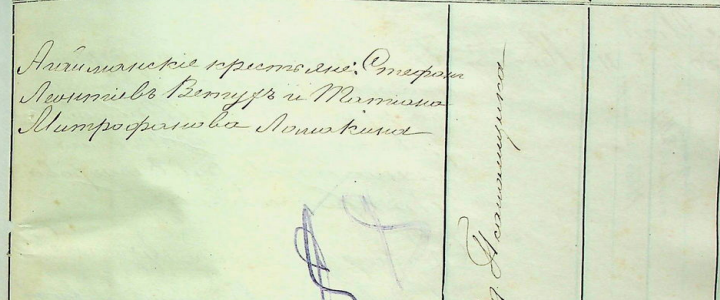 Айтиманскіе крестьяне: Стефанъ
Леонтіевъ Ветухъ и Татіана
Митрофанова Ломакина
Псаломщика